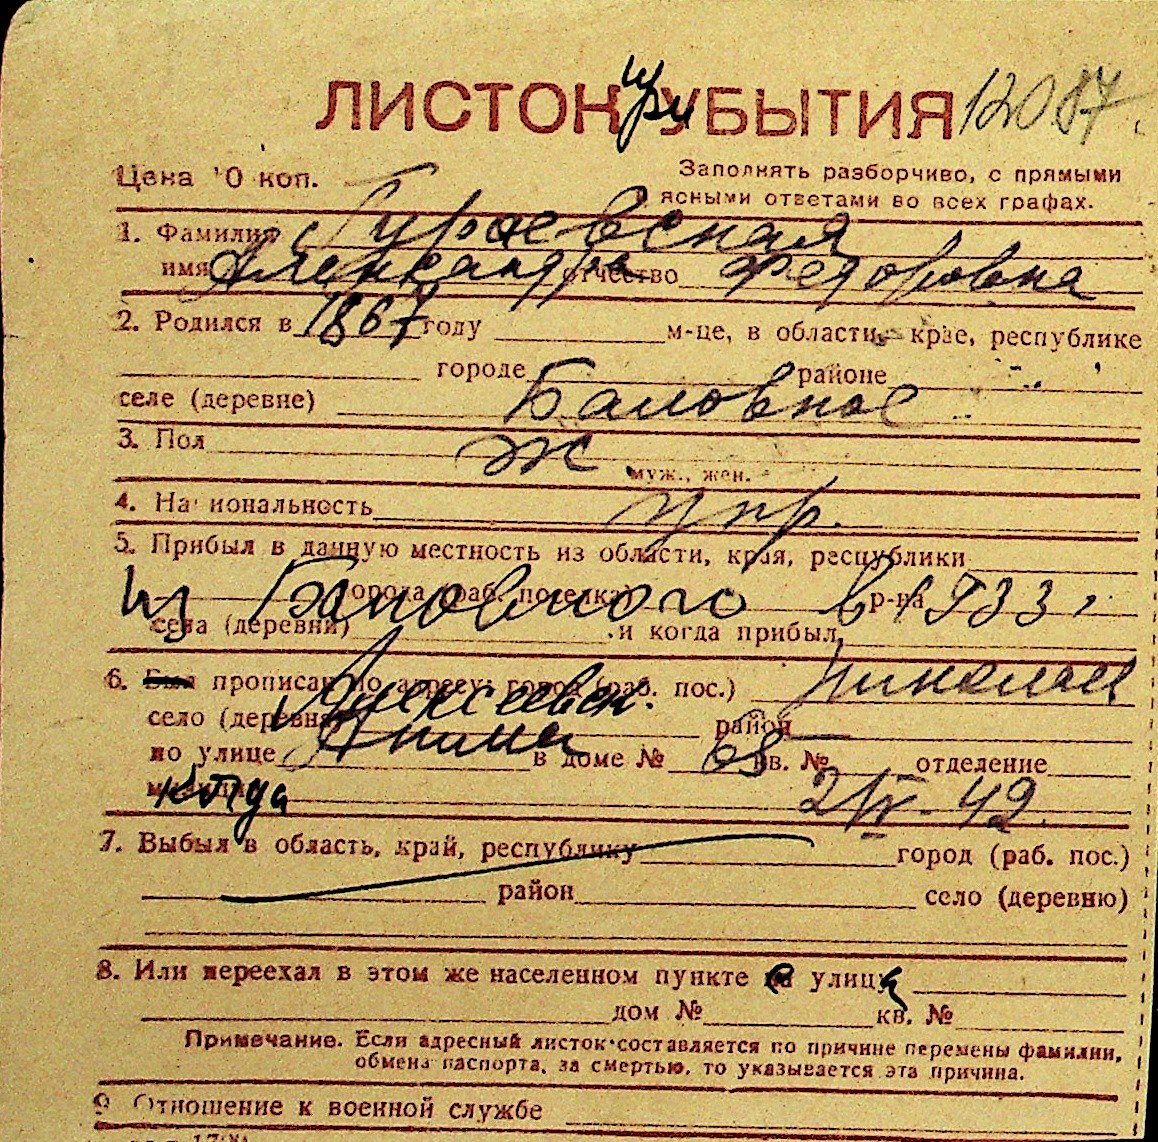 ЛИСТОК при УБЫТИЯ 12087
Цена 10 коп.
Заполнять разборчиво, с прямыми
и ясными ответами во всех графах.
1. Фамилия Гураевская
имя Александра отчество Федоровна
2. Родился в 1867 году м-це, в области, крае, республике
городе районе
селе (деревне) Баловное
3. Пол ж
муж., жен.
4. Национальность укр.
5. Прибыл в данную местность из области, края, республики
из Баловного города (раб. поселка) в р-на 1933 г
села (деревни) и когда прибыл
6. Был прописан по адресу: город (раб. пос.) Николаев
село (деревня) район
по улице в доме № 68 кв. № отделение
когда 2/IV-42
7. Выбыл в область, край, республику город (раб. пос.)
район село (деревню)
8. Или переехал в этом же населенном пункте с улицы
дом № кв. №
Примечание. Если адресный листок составляется по причине перемены фамилии,
обмена паспорта, за смертью, то указывается эта причина.
9 Отношение к военной службе